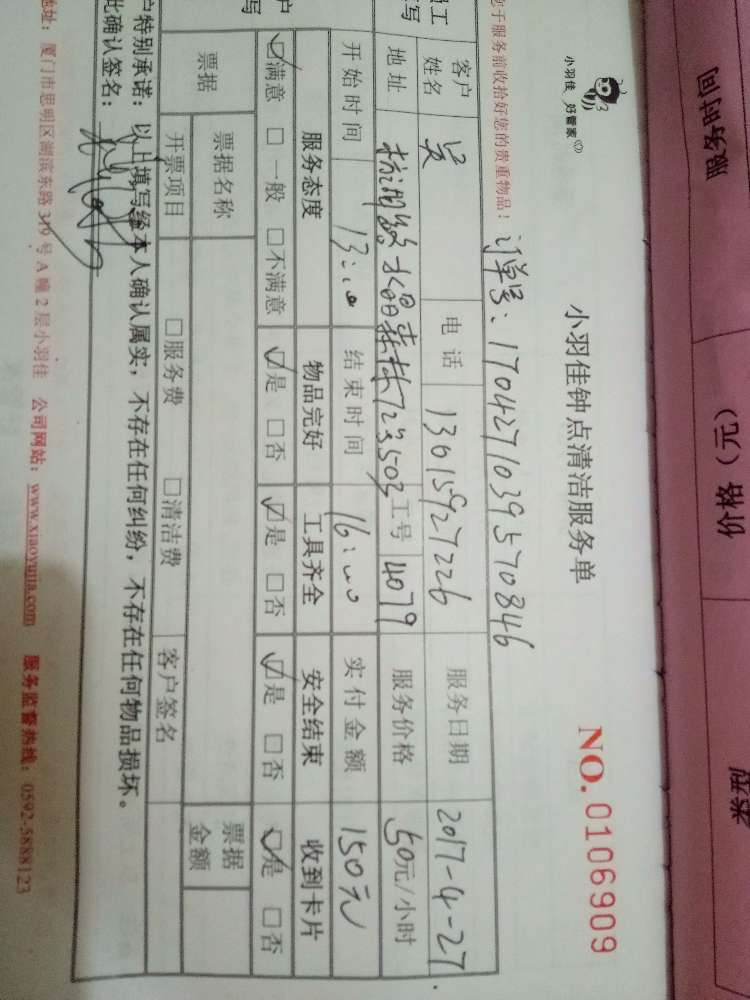 服务时间
价格（元）
类型
小羽佳 好管家
小羽佳钟点清洁服务单
NO.0106909
于服务前收拾好您的贵重物品！
订单号：1704271039570846
员工
填写
客户姓名 吴 电话 13615927226 服务日期 2017-4-27
地址 503 工号 4079 服务价格 50元/小时
开始时间 13:00 结束时间 16:00 实付金额 150元
客户
填写
服务态度 物品完好 工具齐全 安全结束 收到卡片
☑满意 □一般 □不满意 ☑是 □否 ☑是 □否 ☑是 □否 ☑是 □否
票据 票据名称 票据金额
开票项目 □服务费 □清洁费 客户签名
户特别承诺：以上填写经本人确认属实，不存在任何纠纷，不存在任何物品损坏。
此确认签名：
地址：厦门市思明区湖滨东路319号A幢2层小羽佳 公司网站：www.xiaoyujia.com 服务监督热线：0592-5888123